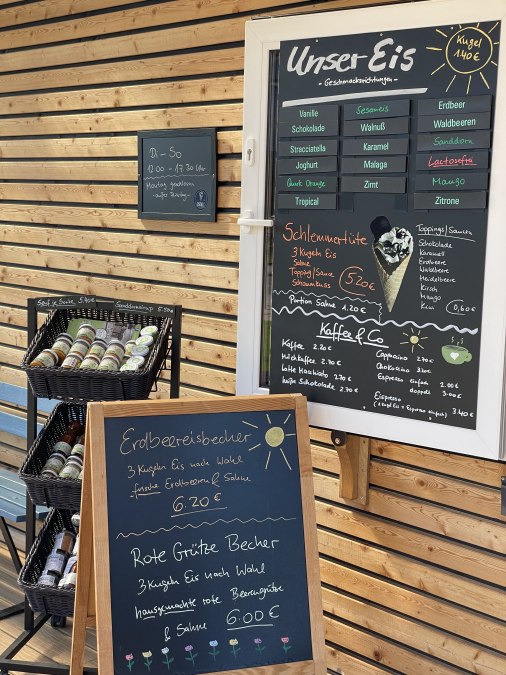 Unser Eis
- Geschmacksrichtungen -
Kugel
1.40 €
Vanille
Sesameis
Erdbeer
Schokolade
Walnuß
Waldbeeren
Stracciatella
Karamel
Sanddorn
Joghurt
Malaga
Lactosefrei
Quark Orange
Zimt
Mango
Tropical
Zitrone
Di - So
12.00 - 17.30 Uhr
Montag geschlossen
Schlemmertüte
3 Kugeln Eis
Sahne
Topping/Sauce
Schaumkuss
5.20 €
Portion Sahne 1.20 €
Toppings/Saucen
Schokolade
Karamell
Erdbeere
Waldbeere
Heidelbeere
Kirsch
Mango
Kiwi
0,60 €
Kaffee & Co
Kaffee 2.20 €
Milchkaffee 2.70 €
Latte Macchiato 2.70 €
heiße Schokolade 2.70 €
Cappucino 2.70 €
Chokocino 3.20 €
Espresso einfach 2.00 €
doppelt 3.00 €
Eispresso
(1 Kugel Eis + Espresso einfach) 3.40 €
Erdbeereisbecher
3 Kugeln Eis nach Wahl
frische Erdbeeren & Sahne
6.20 €
Rote Grütze Becher
3 Kugeln Eis nach Wahl
hausgemachte rote Beerengrütze
& Sahne 6.00 €